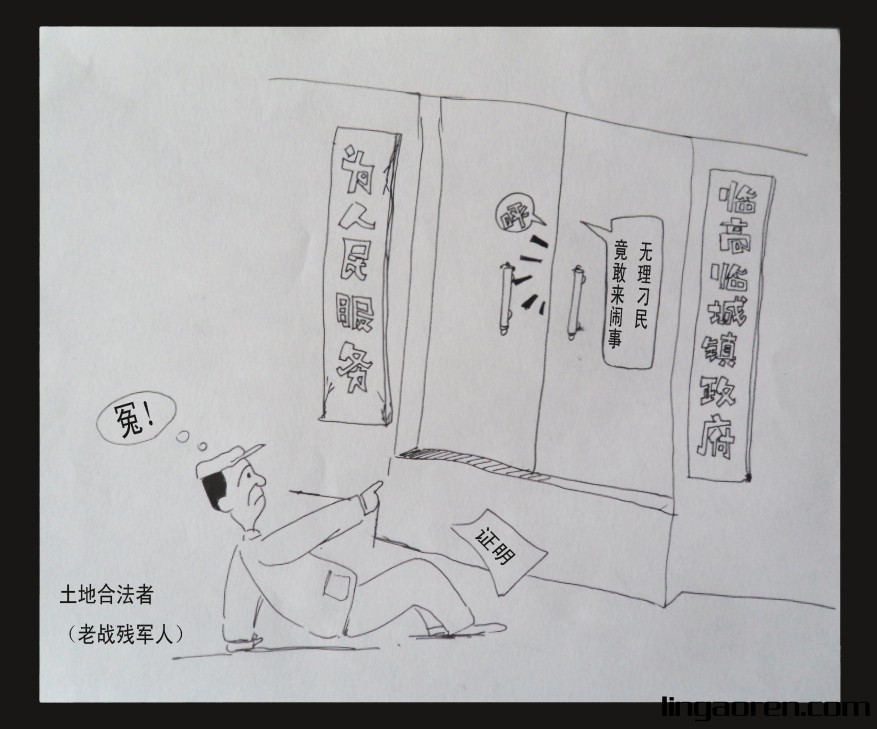 为人民服务
无理刁民
竟敢来闹事
临高临城镇政府
冤!
证明
土地合法者
（老战残军人）
lingaoren.com